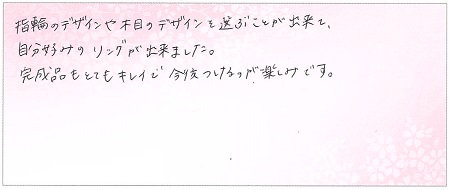 指輪のデザインや木目のデザインを選ぶことが出来て、
自分好みのリングが出来ました。
完成品もとてもキレイで今後つけるのが楽しみです。